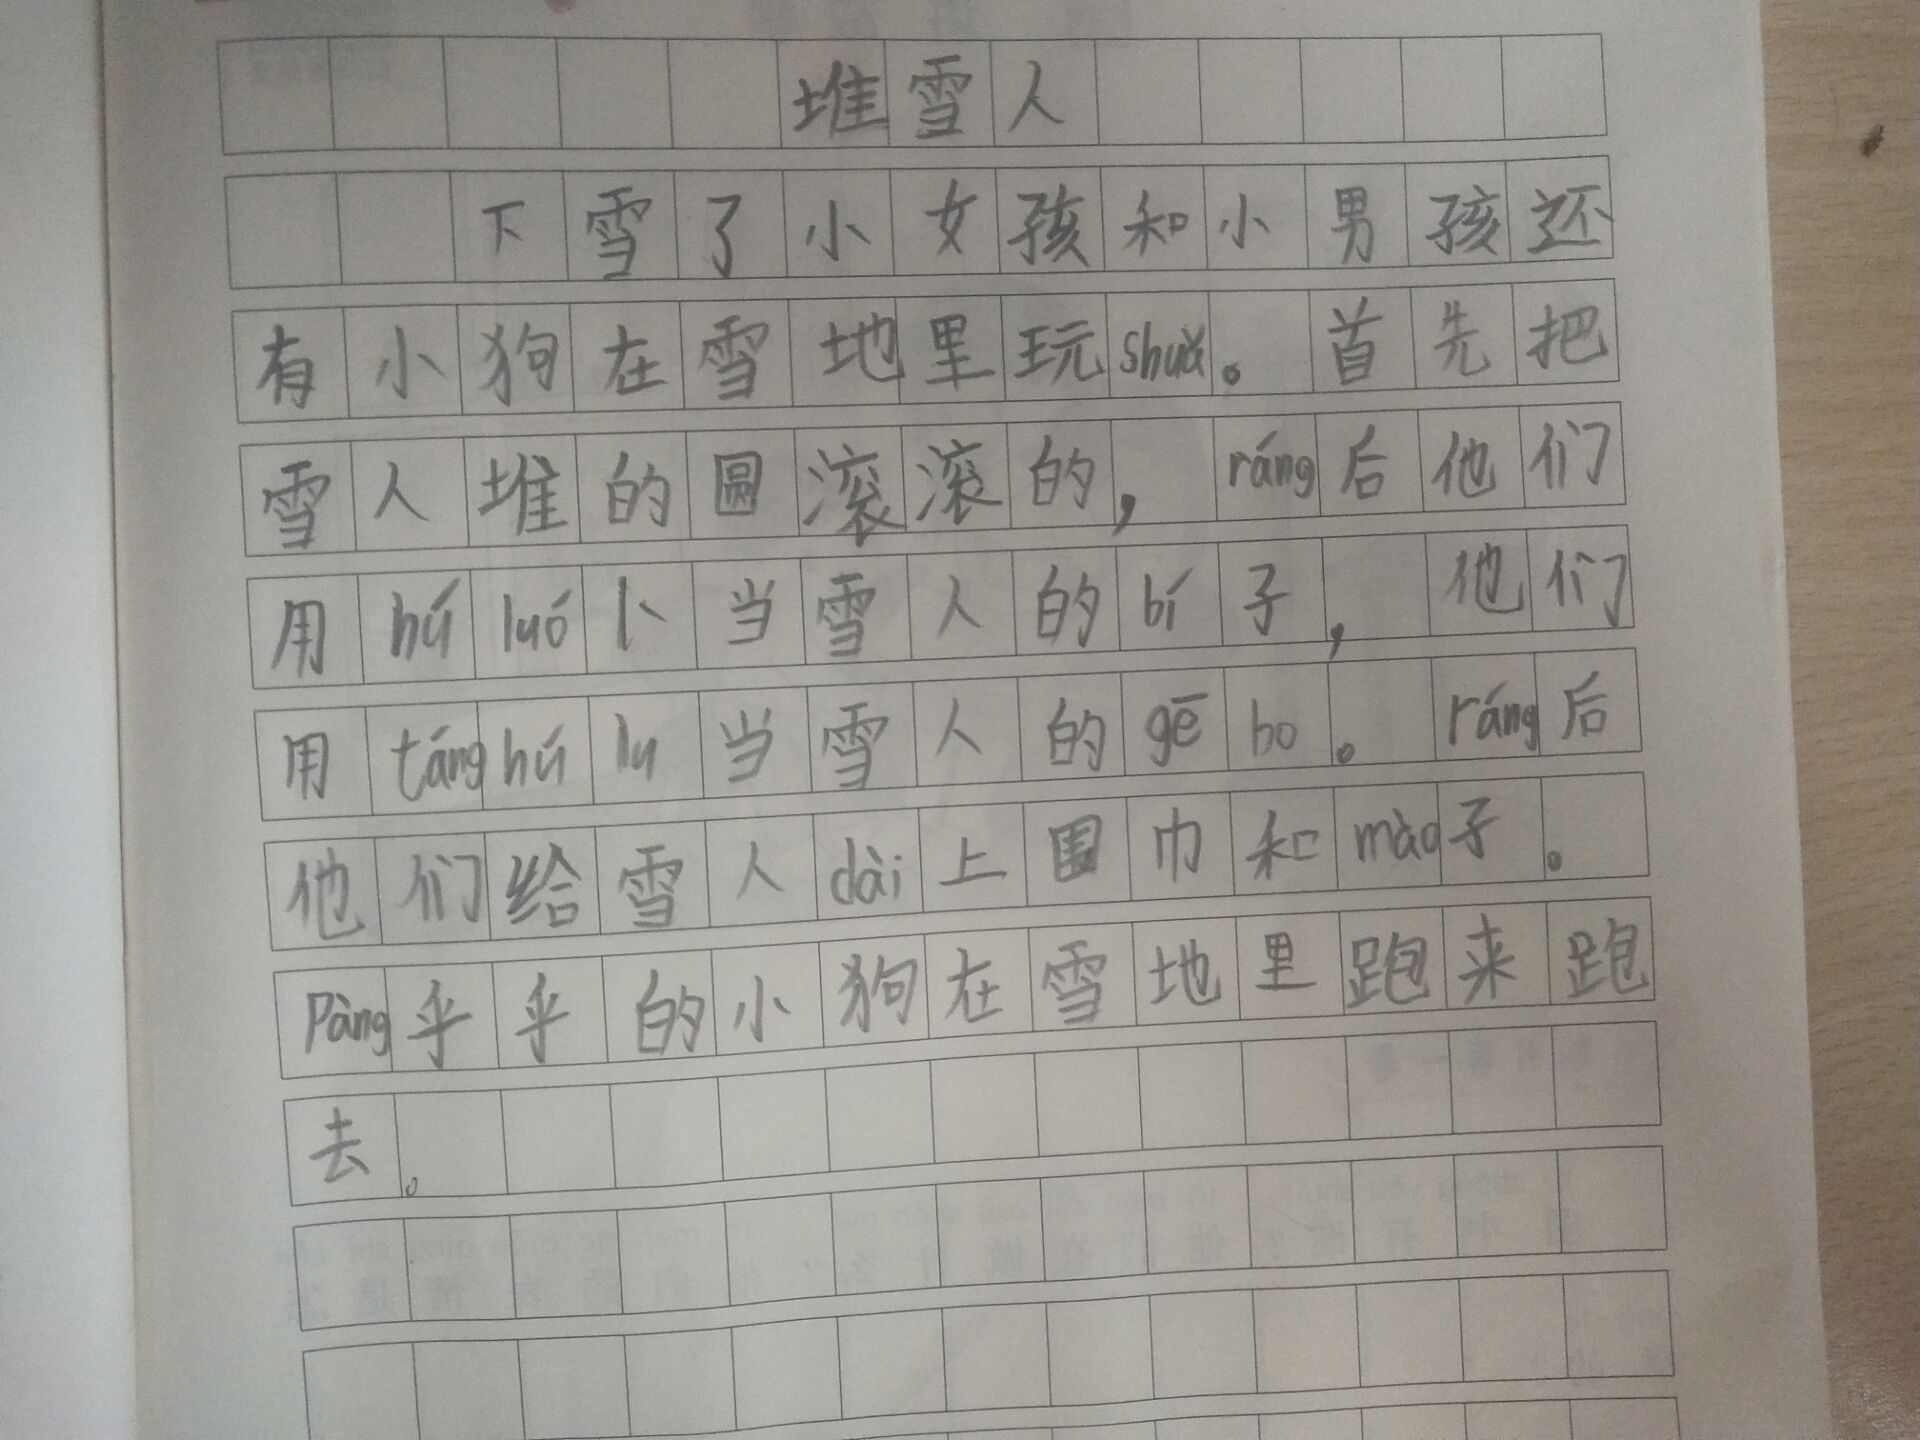 堆雪人
下雪了小女孩和小男孩还
有小狗在雪地里玩shuǎ。首先把
雪人堆的圆滚滚的，ráng后他们
用hú luó卜当雪人的bí子，他们
用táng hú lu当雪人的gē bo。ráng后
他们给雪人dài上围巾和mào子。
Pàng乎乎的小狗在雪地里跑来跑
去。